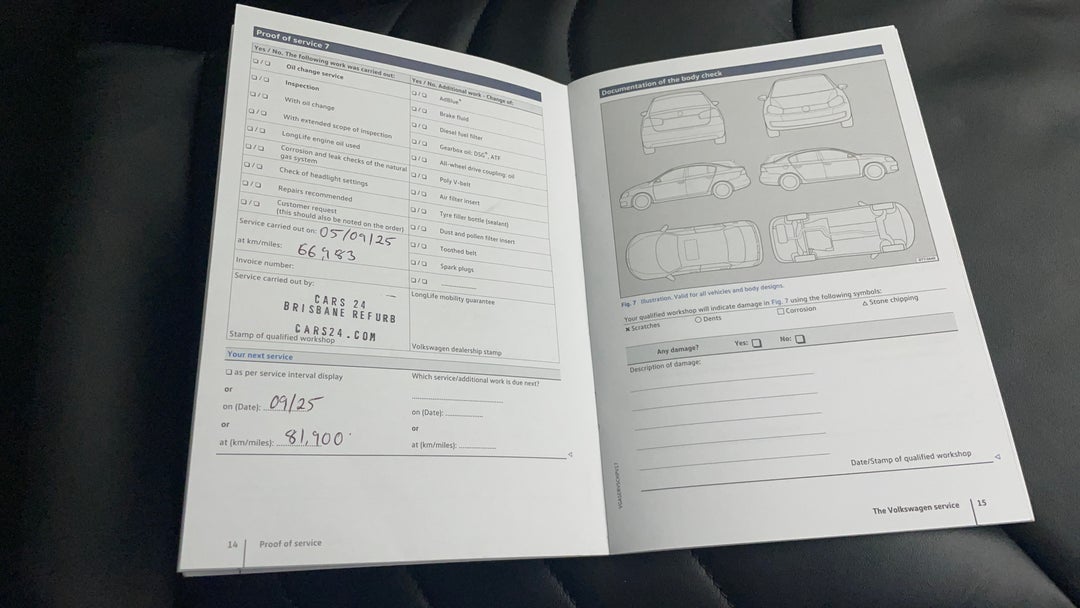 Proof of service 7
Yes / No. The following work was carried out:
☐/☐ Oil change service
☐/☐ Inspection
☐/☐ With oil change
☐/☐ With extended scope of inspection
☐/☐ LongLife engine oil used
☐/☐ Corrosion and leak checks of the natural
gas system
☐/☐ Check of headlight settings
☐/☐ Repairs recommended
☐/☐ Customer request
(this should also be noted on the order)
Service carried out on: 05/09/25
at km/miles: 66,983
Invoice number:
Service carried out by:
CARS 24
BRISBANE REFURB
CARS24.COM
Stamp of qualified workshop
Yes / No. Additional work - Change of:
☐/☐ AdBlue®
☐/☐ Brake fluid
☐/☐ Diesel fuel filter
☐/☐ Gearbox oil: DSG®, ATF
☐/☐ All-wheel drive coupling: oil
☐/☐ Poly V-belt
☐/☐ Air filter insert
☐/☐ Tyre filler bottle (sealant)
☐/☐ Dust and pollen filter insert
☐/☐ Toothed belt
☐/☐ Spark plugs
☐/☐ ............
LongLife mobility guarantee
Volkswagen dealership stamp
Your next service
☐ as per service interval display
or
on (Date): 09/25
or
at (km/miles): 81,900
Which service/additional work is due next?
on (Date): ............
or
at (km/miles): ............
14 Proof of service
Documentation of the body check
Fig. 7 Illustration. Valid for all vehicles and body designs.
Your qualified workshop will indicate damage in Fig. 7 using the following symbols:
× Scratches ○ Dents ☐ Corrosion △ Stone chipping
Any damage? Yes: ☐ No: ☐
Description of damage:
Date/Stamp of qualified workshop
The Volkswagen service 15